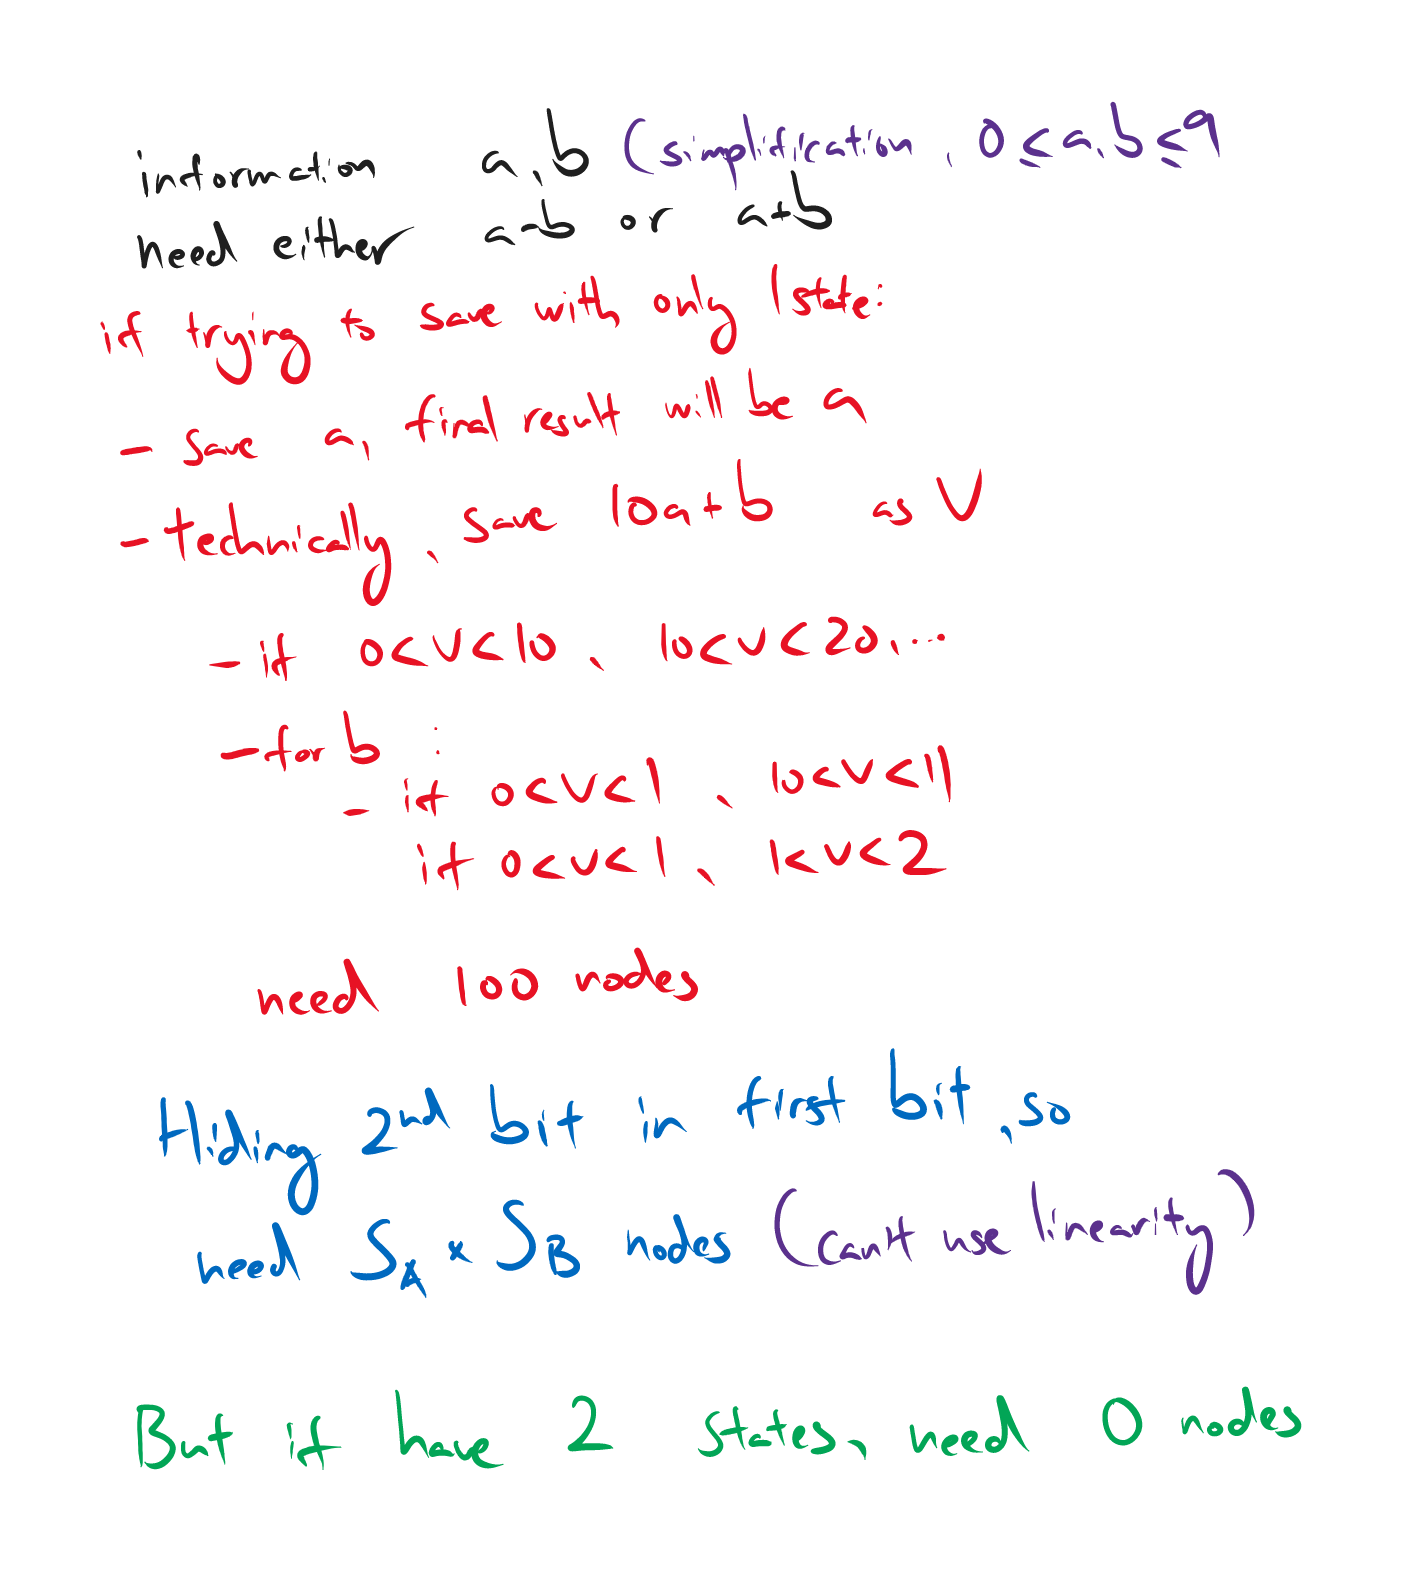 information a, b (simplification, 0 ≤ a, b ≤ 9
need either a-b or a+b
if trying to save with only 1 state:
- save a, final result will be a
- technically, save 10a+b as V
- if 0<V<10, 10<V<20, ...
- for b :
- if 0<V<1, 10<V<11
if 0<V<1, 1<V<2
need 100 nodes
Hiding 2nd bit in first bit, so
need S_A x S_B nodes (can't use linearity)
But if have 2 states, need 0 nodes